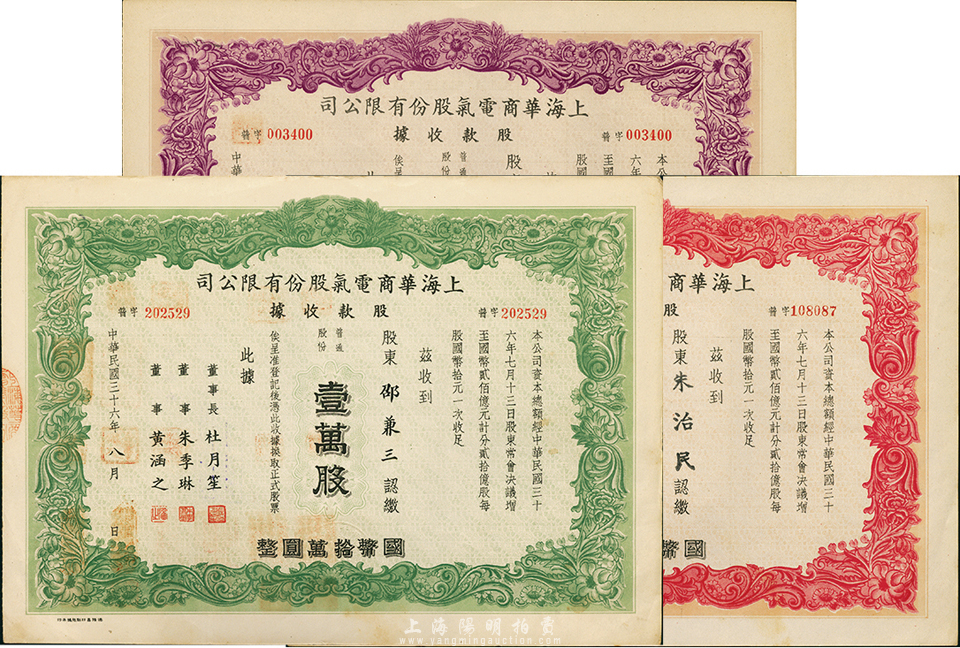 上海華商電氣股份有限公司
股款收據
普字003400
普字003400
本公
六年
至國
股國
股
普通
股份
俟呈
中華
上海華商電氣股份有限公司
股款收據
普字202529
普字202529
本公司資本總額經中華民國三十
六年七月十三日股東常會決議增
至國幣貳佰億元計分貳拾億股每
股國幣拾元一次收足
茲收到
股東邵兼三認繳
普通
股份
壹萬股
國幣拾萬圓整
俟呈准登記後憑此收據換取正式股票
此據
董事長杜月笙
董事朱季琳
董事黃涵之
中華民國三十六年八月日
上海華商
股
普字108087
本公司資本總額經中華民國三十
六年七月十三日股東常會決議增
至國幣貳佰億元計分貳拾億股每
股國幣拾元一次收足
茲收到
股東朱治民認繳
國幣
上海陽明拍賣
www.yangmingauction.com